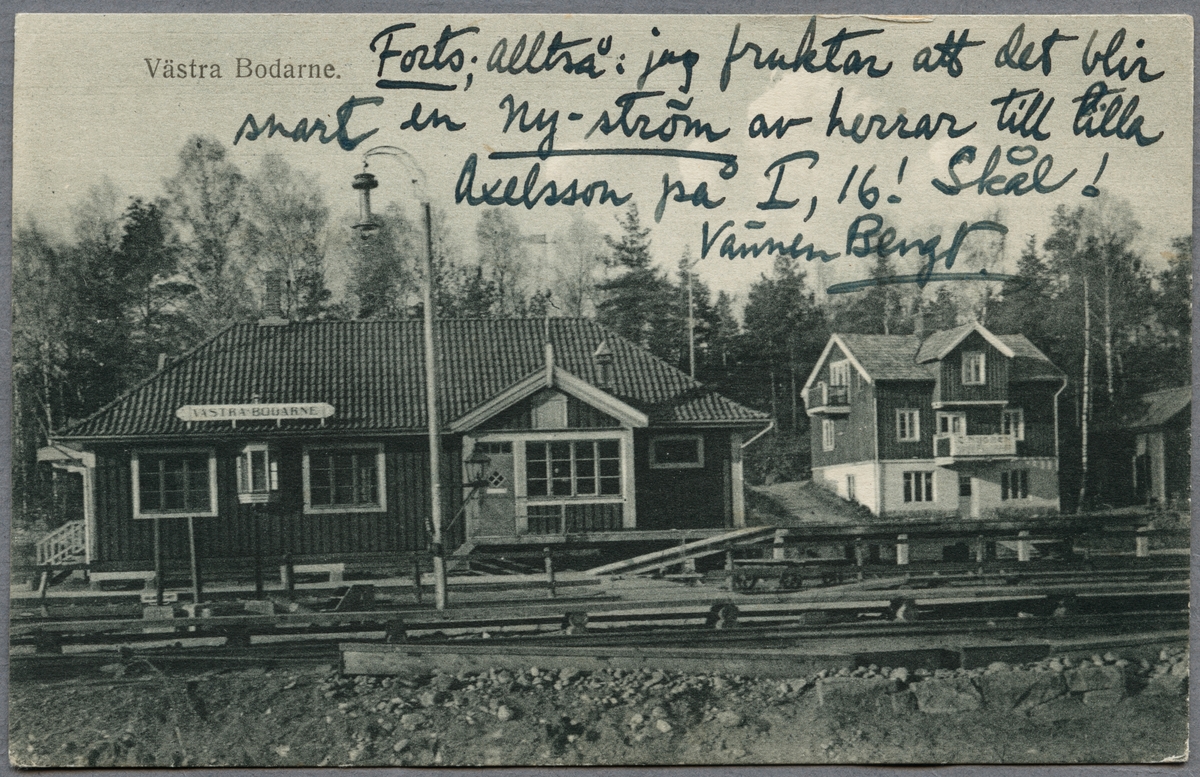 Västra Bodarne.
Forts; alltså: jag fruktar att det blir
snart en Ny-ström av herrar till lilla
Axelsson på I, 16! Skål!
Vännen Bengt.
VÄSTRA-BODARNE